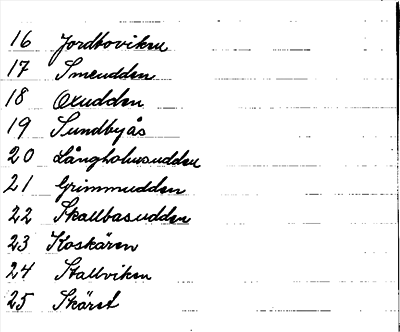 16 Jordboviken
17 Smeudden
18 Oxudden
19 Sundbyås
20 Långholmsudden
21 Grimmudden
22 Skallbasudden
23 Koskären
24 Stallviken
25 Skäret